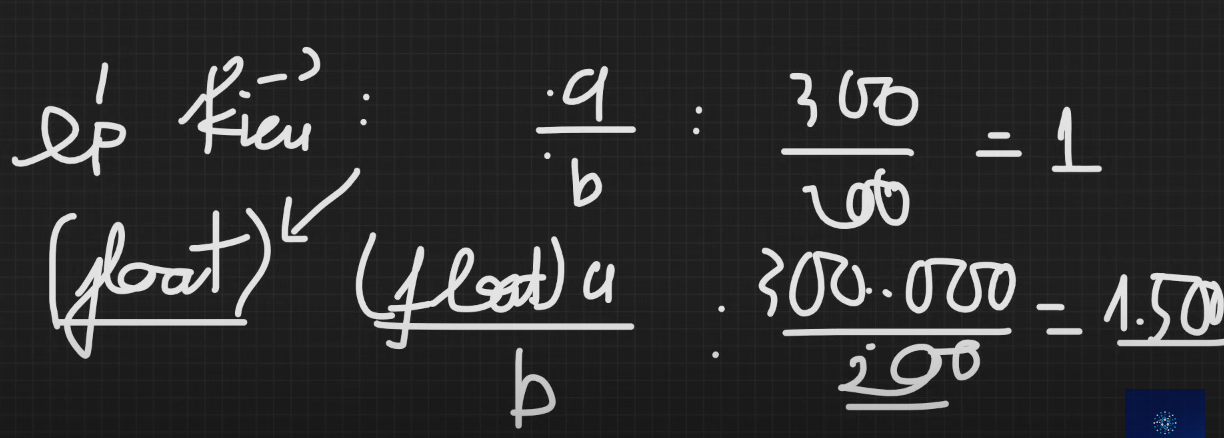 ép kiểu : a/b : 300/200 = 1
(float) (float) a/b : 300.000/200 = 1.500